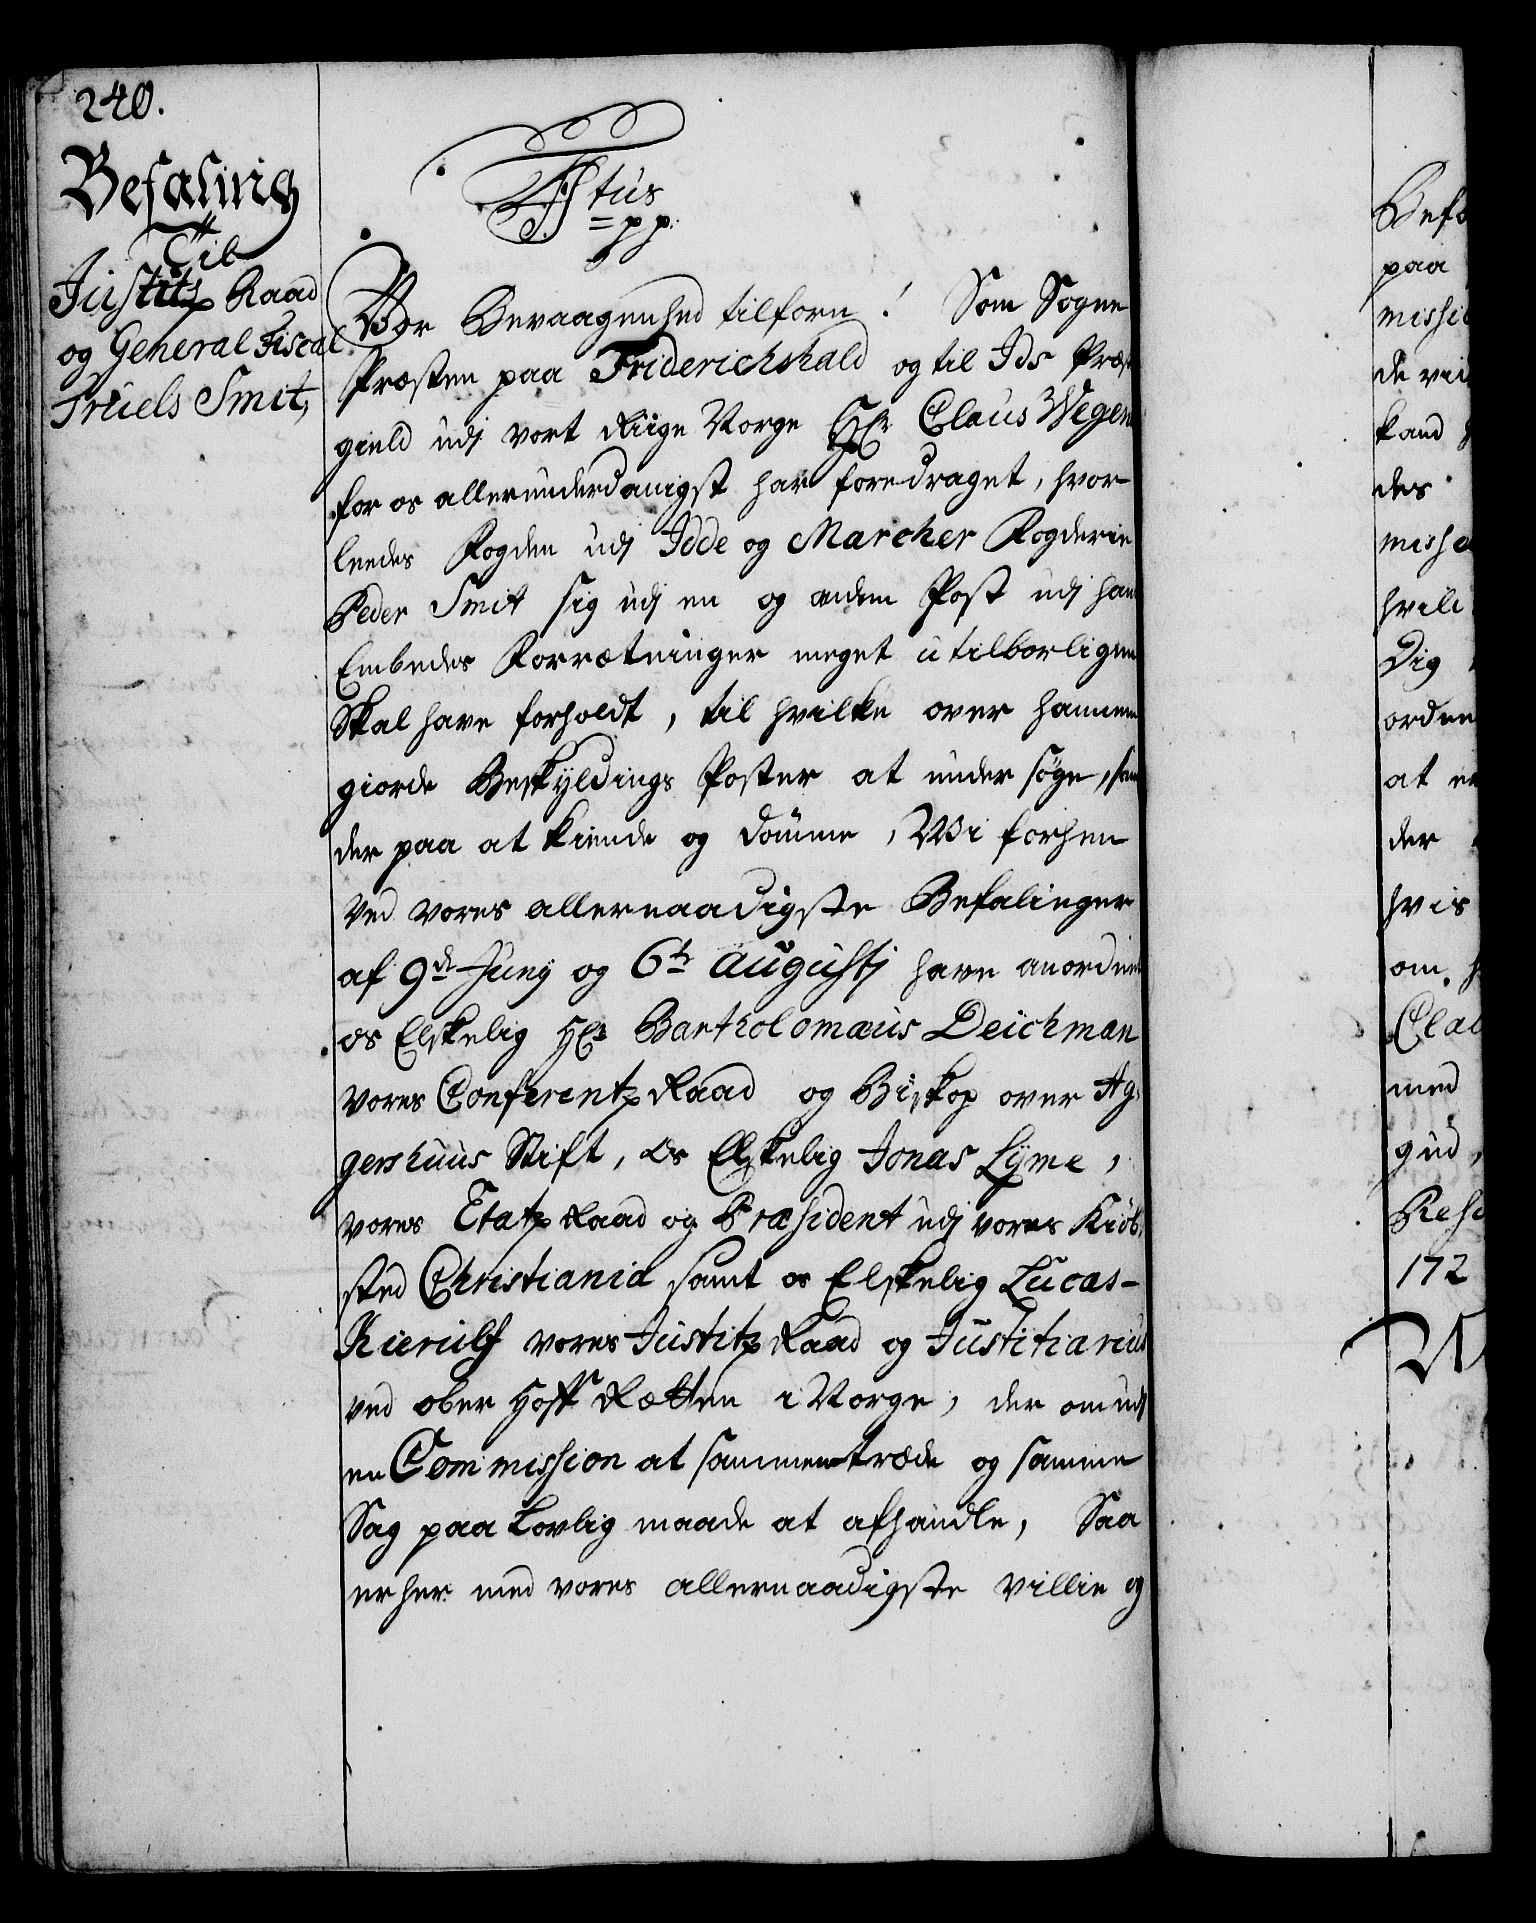 240.
Befaling
Til
Justitz Raad
og General Fiscal
Truels Smit,
Ftus
= pp.
Vor Bevaagenhed tilforn! Som Sogne
Præsten paa Friderichshald og til Ids Præste
gield udj vort Riige Norge Hr Claus Wegen
for os allerunderdanigst har foredraget, hvor
leedes Fogden udj Idde og Marcher Fogderie
Peder Smit sig udj en og anden Post udj hans
Embedes Forrætninger meget utilborligen
Skal have forholdt, til hvilke over hannem
giorde Beskyldings Poster at under søge, sam
der paa at kiende og dømme, Wi forhen
ved vores allernaadigste Befalinger
af 9de Junij og 6te Augustj have anordnet
os Elskelig Hr Bartholomæus Deichman
vores Conferentz Raad og Biskop over Ag,
gershuus Stift, Os Elskelig Jonas Lyme,
vores Etatz Raad og Præsident udj vores Kiøb,
sted Christiania samt os Elskelig Lucas-
Kierulf vores Justitz Raad og Justitiarius
ved ober Hoff Rætten i Norge, der om udj
en Commission at sammentræde og samme
Sag paa Lovlig maade at afhandle, Saa
er her med vores allernaadigste villie og
Befa
paa
missio
de vii
kand
des
missi
hvili
Dig
ordne
at er
der
hvis
om
Clau
med
gud,
Resi
172